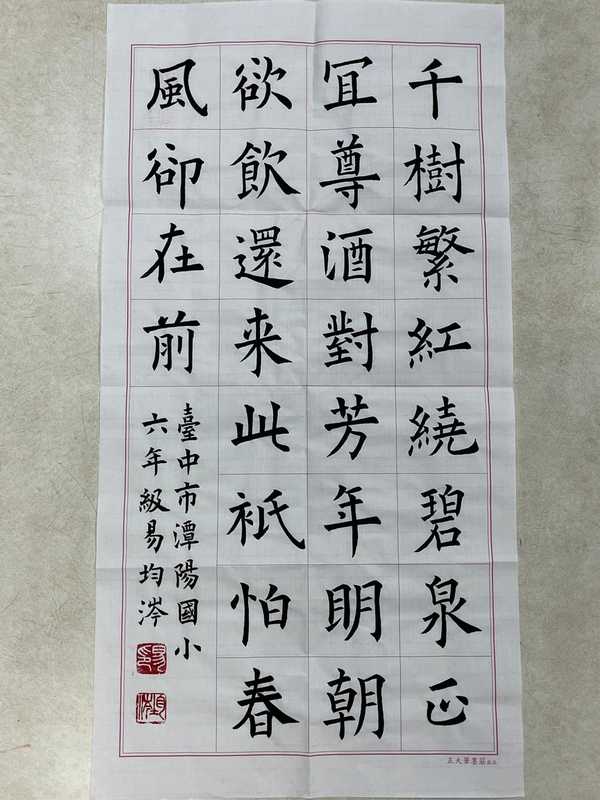 千樹繁紅繞碧泉正
冝尊酒對芳年明朝
欲飲還来此袛怕春
風卻在前
臺中市潭陽國小
六年級易均涔
正大筆墨莊